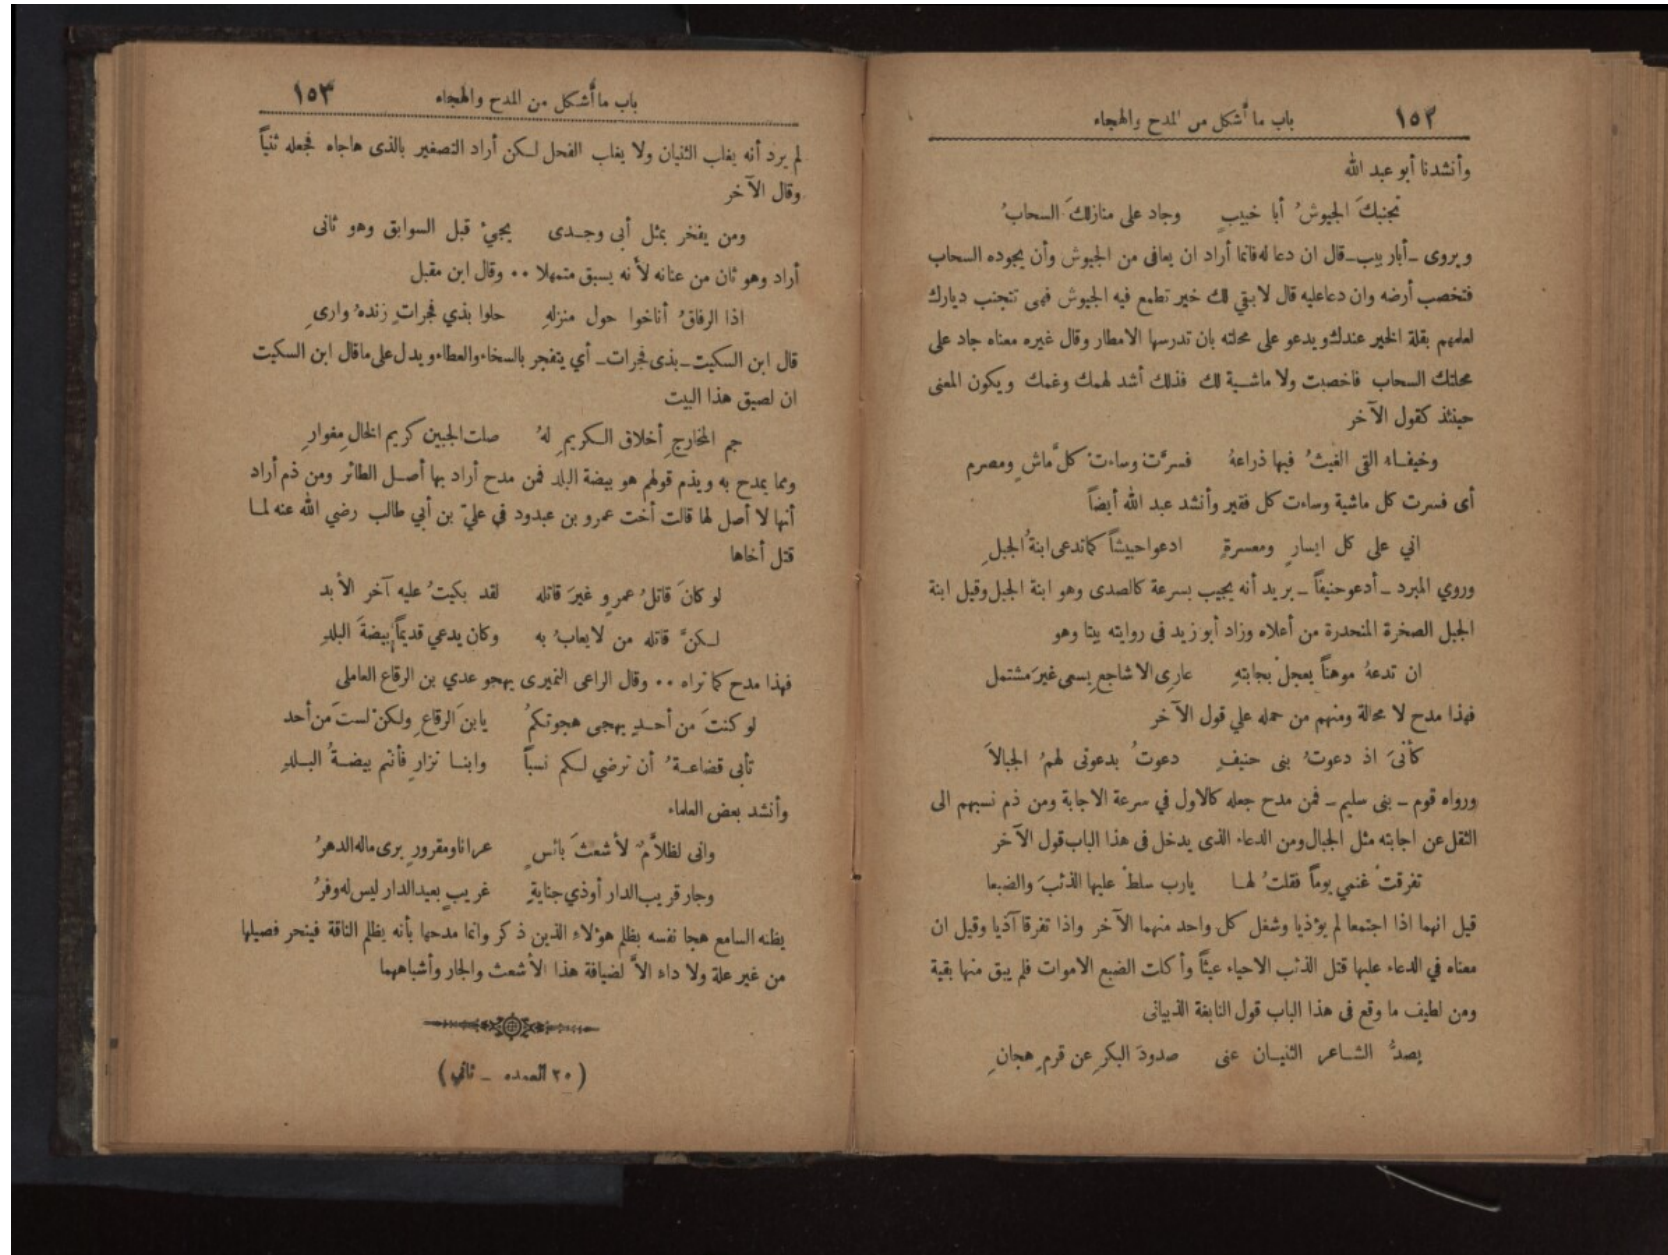 ١٥٢ باب ما أشكل من المدح والهجاء
وأنشدنا أبو عبد الله
تجنبكَ الجيوشُ أبا خبيبٍ وجاد على منازلكَ السحابُ
ويروى ـ أبا ربيب ـ قال ان دعا له فانما أراد ان يعافى من الجيوش وأن يجوده السحاب
فتخصب أرضه وان دعا عليه قال لا بقي لك خير تطمع فيه الجيوش فهى تتجنب ديارك
لعلمهم بقلة الخير عندك ويدعو على محلته بان تدرسها الامطار وقال غيره معناه جاد على
محلتك السحاب فاخصبت ولا ماشية لك فذلك أشد لهمك وغمك ويكون المعنى
حينئذ كقول الآخر
وخيفاء القى الغيثُ فيها ذراعهُ فسرَّت وساءت كلَّ ماشٍ ومصرم
أى فسرت كل ماشية وساءت كل فقير وأنشد عبد الله أيضاً
اني على كل ايسارٍ ومعسرةٍ ادعوا حبيشاً كما تدعى ابنةُ الجبلِ
وروي المبرد ـ أدعو حنيفاً ـ يريد أنه يجيب بسرعة كالصدى وهو ابنة الجبل وقيل ابنة
الجبل الصخرة المنحدرة من أعلاه وزاد أبو زيد فى روايته بيتا وهو
ان تدعهُ موهناً يعجلْ بجابتهِ عارِى الاشاجعِ يسعى غيرَ مشتمل
فهذا مدح لا محالة ومنهم من حمله علي قول الآخر
كأنىَ اذ دعوتُ بنى حنيفٍ دعوتُ بدعوتى لهمُ الجبالاَ
ورواه قوم ـ بنى سليم ـ فمن مدح جعله كالاول في سرعة الاجابة ومن ذم نسبهم الى
الثقل عن اجابته مثل الجبال ومن الدعاء الذى يدخل فى هذا الباب قول الآخر
تفرقتْ غنمي يوماً فقلتُ لهـا يارب سلطْ عليها الذئبَ والضبعا
قيل انهما اذا اجتمعا لم يؤذيا وشغل كل واحد منهما الآخر واذا تفرقا آذيا وقيل ان
معناه في الدعاء عليها قتل الذئب الاحياء عيثاً وأكلت الضبع الاموات فلم يبق منها بقية
ومن لطيف ما وقع فى هذا الباب قول النابغة الذبيانى
يصدُّ الشـاعر الثنيـان عنى صدودَ البكرِ عن قرمِ هجانِ
باب ما أشكل من المدح والهجاء ١٥٣
لم يرد أنه يغلب الثنيان ولا يغلب الفحل لـكن أراد التصغير بالذى هاجاه فجعله ثنياً
وقال الآخر
ومن يفخر بمثل أبى وجـدى يجىْ قبل السوابق وهو ثانى
أراد وهو ثان من عنانه لأنه يسبق متمهلا ٠٠ وقال ابن مقبل
اذا الرفاقُ أناخوا حول منزلهِ حلوا بذي فجراتٍ زندهُ وارىِ
قال ابن السكيت ـ بذى فجرات ـ أي يتفجر بالسخاء والعطاء ويدل على ماقال ابن السكيت
ان لصيق هذا البيت
جم المخارجِ أخلاق الـكريمِ لهُ صلت الجبين كريم الخالِ مغوارِ
ومما يمدح به ويذم قولهم هو بيضة البلد فمن مدح أراد بها أصـل الطائر ومن ذم أراد
أنها لا أصل لها قالت أخت عمرو بن عبدود في عليّ بن أبي طالب رضي الله عنه لمـا
قتل أخاها
لو كانَ قاتلُ عمرٍو غيرَ قاتله لقد بكيتُ عليه آخر الأبد
لـكنَّ قاتله من لا يعابُ به وكان يدعي قديماً بيضةَ البلدِ
فهذا مدح كما تراه ٠٠ وقال الراعى النميرى يهجو عدي بن الرقاع العاملى
لو كنتَ من أحـدٍ يهجى هجوتـكمُ يابنَ الرقاعِ ولكنْ لستَ من أحد
تأبى قضاعـةُ أن ترضي لـكم نسباً وابنـا نزارٍ فأنتم بيضـةُ البـلدِ
وأنشد بعض العلماء
وانى لظلاَّمٌ لأشعثَ بائسٍ عرانا ومقرورٍ برى ماله الدهرُ
وجار قريب الدار أوذي جنايةٍ غريبٍ بعيد الدار ليس له وفرُ
يظنه السامع هجا نفسه بظلم هؤلاء الذين ذكر وانما مدحها بأنه يظلم الناقة فينحر فصيلها
من غير علة ولا داء الاَّ لضيافة هذا الأشعث والجار وأشباههما
(٢٠ العمده ـ ثاني)